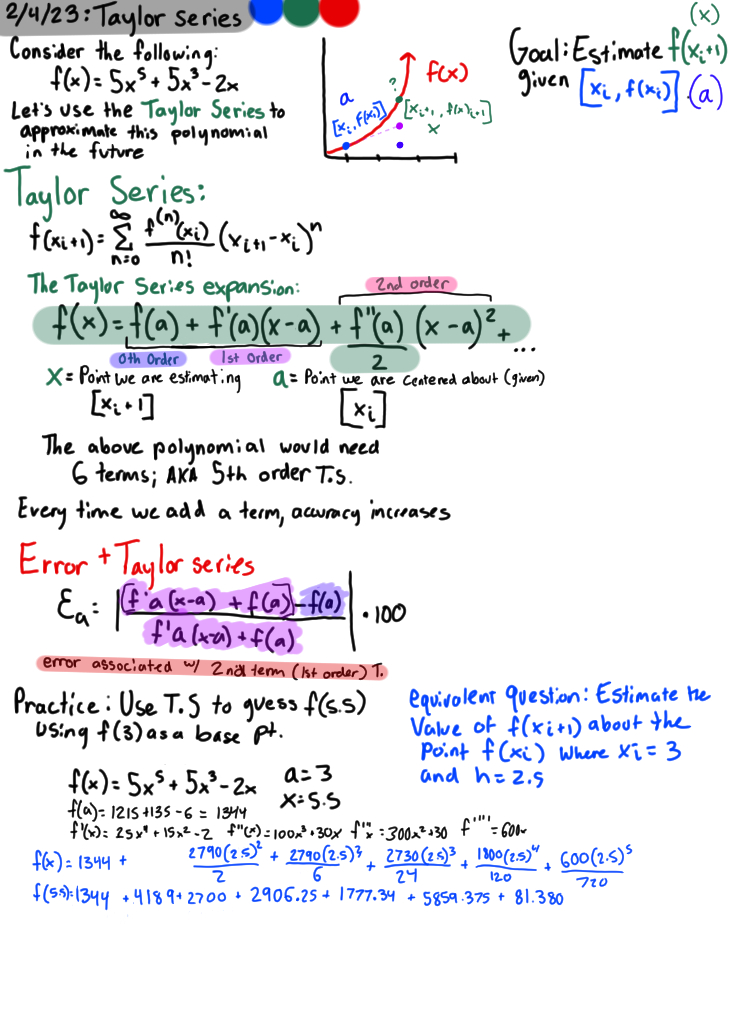 2/4/23: Taylor Series
Consider the following:
f(x) = 5x⁵ + 5x³ - 2x
Let's use the Taylor Series to
approximate this polynomial
in the future
a
[xᵢ, f(xᵢ)]
?
f(x)
[xᵢ₊₁, f(x)ᵢ₊₁]
x
(x)
Goal: Estimate f(xᵢ₊₁)
given [xᵢ, f(xᵢ)] (a)
Taylor Series:
f(xᵢ₊₁) = ∞ Σ n=0 f⁽ⁿ⁾(xᵢ) / n! (xᵢ₊₁ - xᵢ)ⁿ
The Taylor Series expansion:
2nd order
f(x) = f(a) + f'(a)(x-a) + f''(a) / 2 (x-a)² + ...
0th Order 1st Order
x = Point we are estimating a = Point we are centered about (given)
[xᵢ+1] [xᵢ]
The above polynomial would need
6 terms; AKA 5th order T.S.
Every time we add a term, accuracy increases
Error + Taylor series
Ɛₐ = | [f'a(x-a) + f(a)] - f(a) / f'a(x-a) + f(a) | · 100
error associated w/ 2nd term (1st order) T.
Practice: Use T.S to guess f(5.5)
using f(3) as a base pt.
equivalent question: Estimate the
Value of f(xᵢ+1) about the
Point f(xᵢ) where xᵢ = 3
and h = 2.5
f(x) = 5x⁵ + 5x³ - 2x a = 3
x = 5.5
f(a) = 1215 + 135 - 6 = 1344
f'(x) = 25x⁴ + 15x² - 2 f''(x) = 100x³ + 30x f'''x = 300x² + 30 f'''' = 600x
f(x) = 1344 + 2790(2.5)² / 2 + 2790(2.5)³ / 6 + 2730(2.5)³ / 24 + 1800(2.5)⁴ / 120 + 600(2.5)⁵ / 720
f(5.5) = 1344 + 4189 + 2700 + 2906.25 + 1777.34 + 5859.375 + 81.380